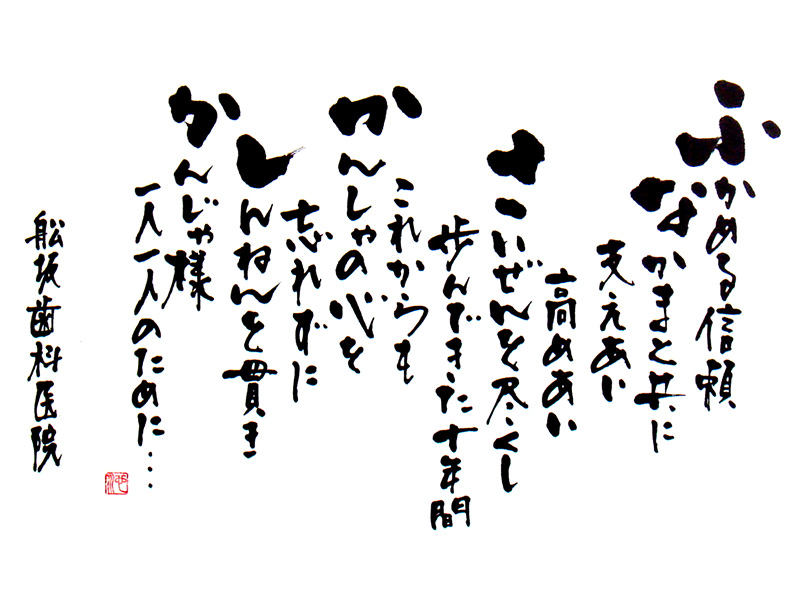 ふかめる信頼
なかまと共に
支えあい
高めあい
さいぜんを尽くし
歩んできた十年間
これからも
かんしゃの心を
忘れずに
しんねんを貫き
かんじゃ様
一人一人のために…
船坂歯科医院